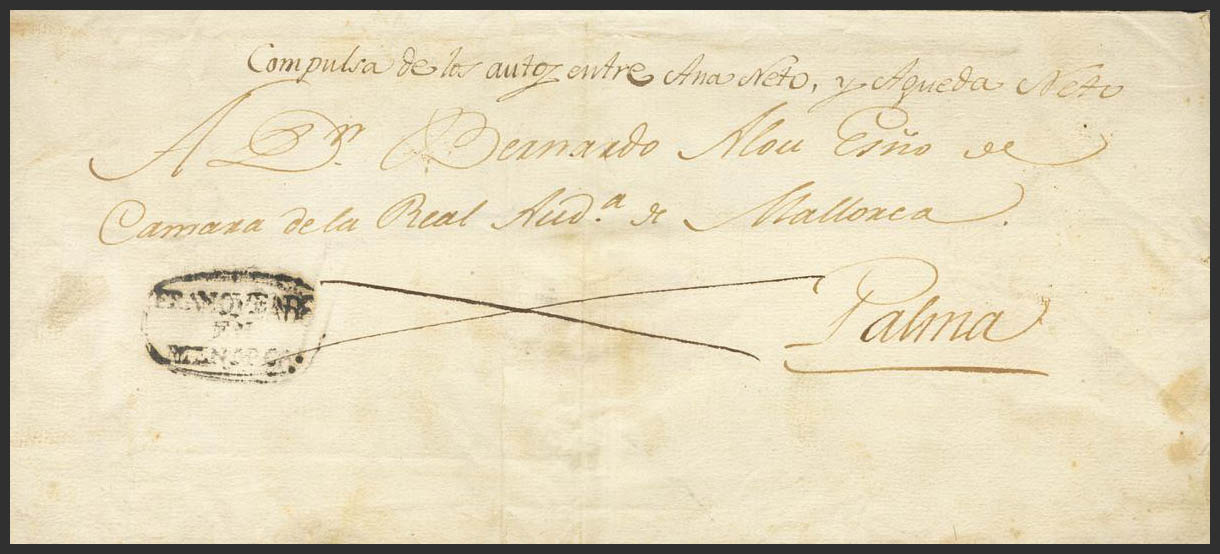 Compulsa de los autos entre Ana Neto, y Agueda Neto
A Dn. Bernardo Alou Esño de
Camara de la Real Aud.a de Mallorca.
Palma
FRANQUEADO
EN
MENORCA